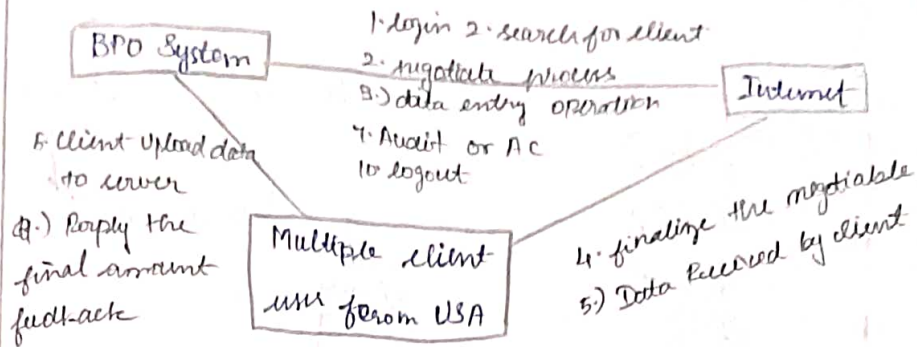 BPO System
1. login 2. search for client
2. negotiate process
3.) data entry operation
7. Audit or AC
10 logout
Internet
6. Client upload data
to server
the
final amount
Multiple client
from USA
4. finalize the negotiable
5.) Data Received by client